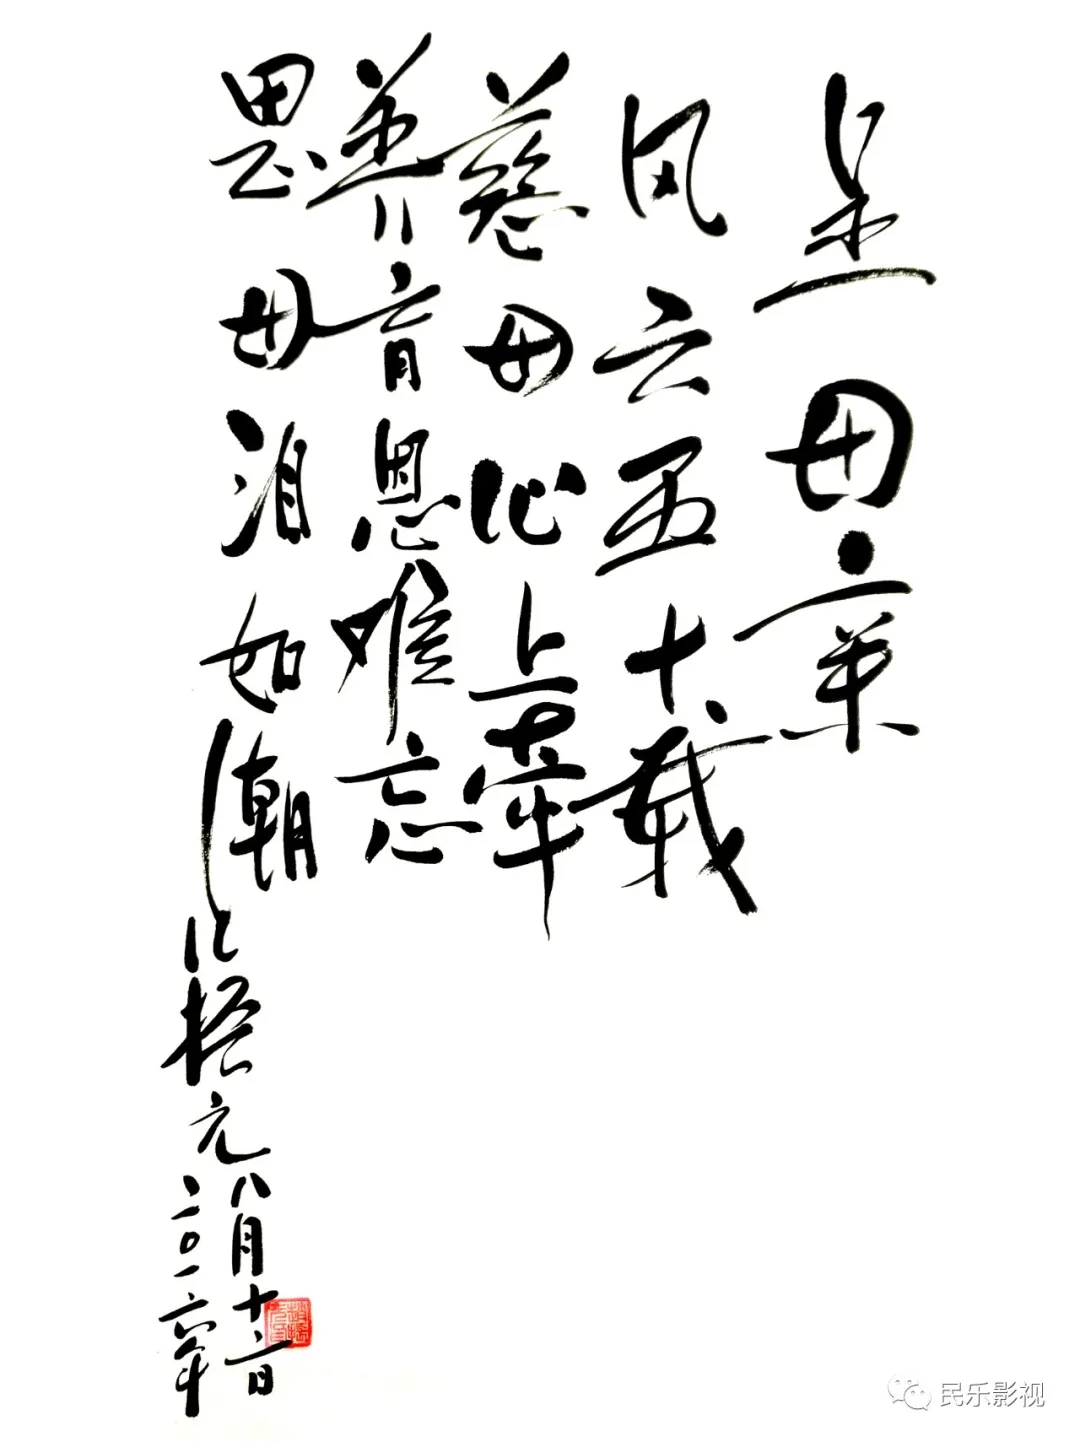 呈母亲
风云五十载
慈母心上牵
养育恩难忘
思母泪如潮
元
八月十二日
二〇一六年
民乐影视